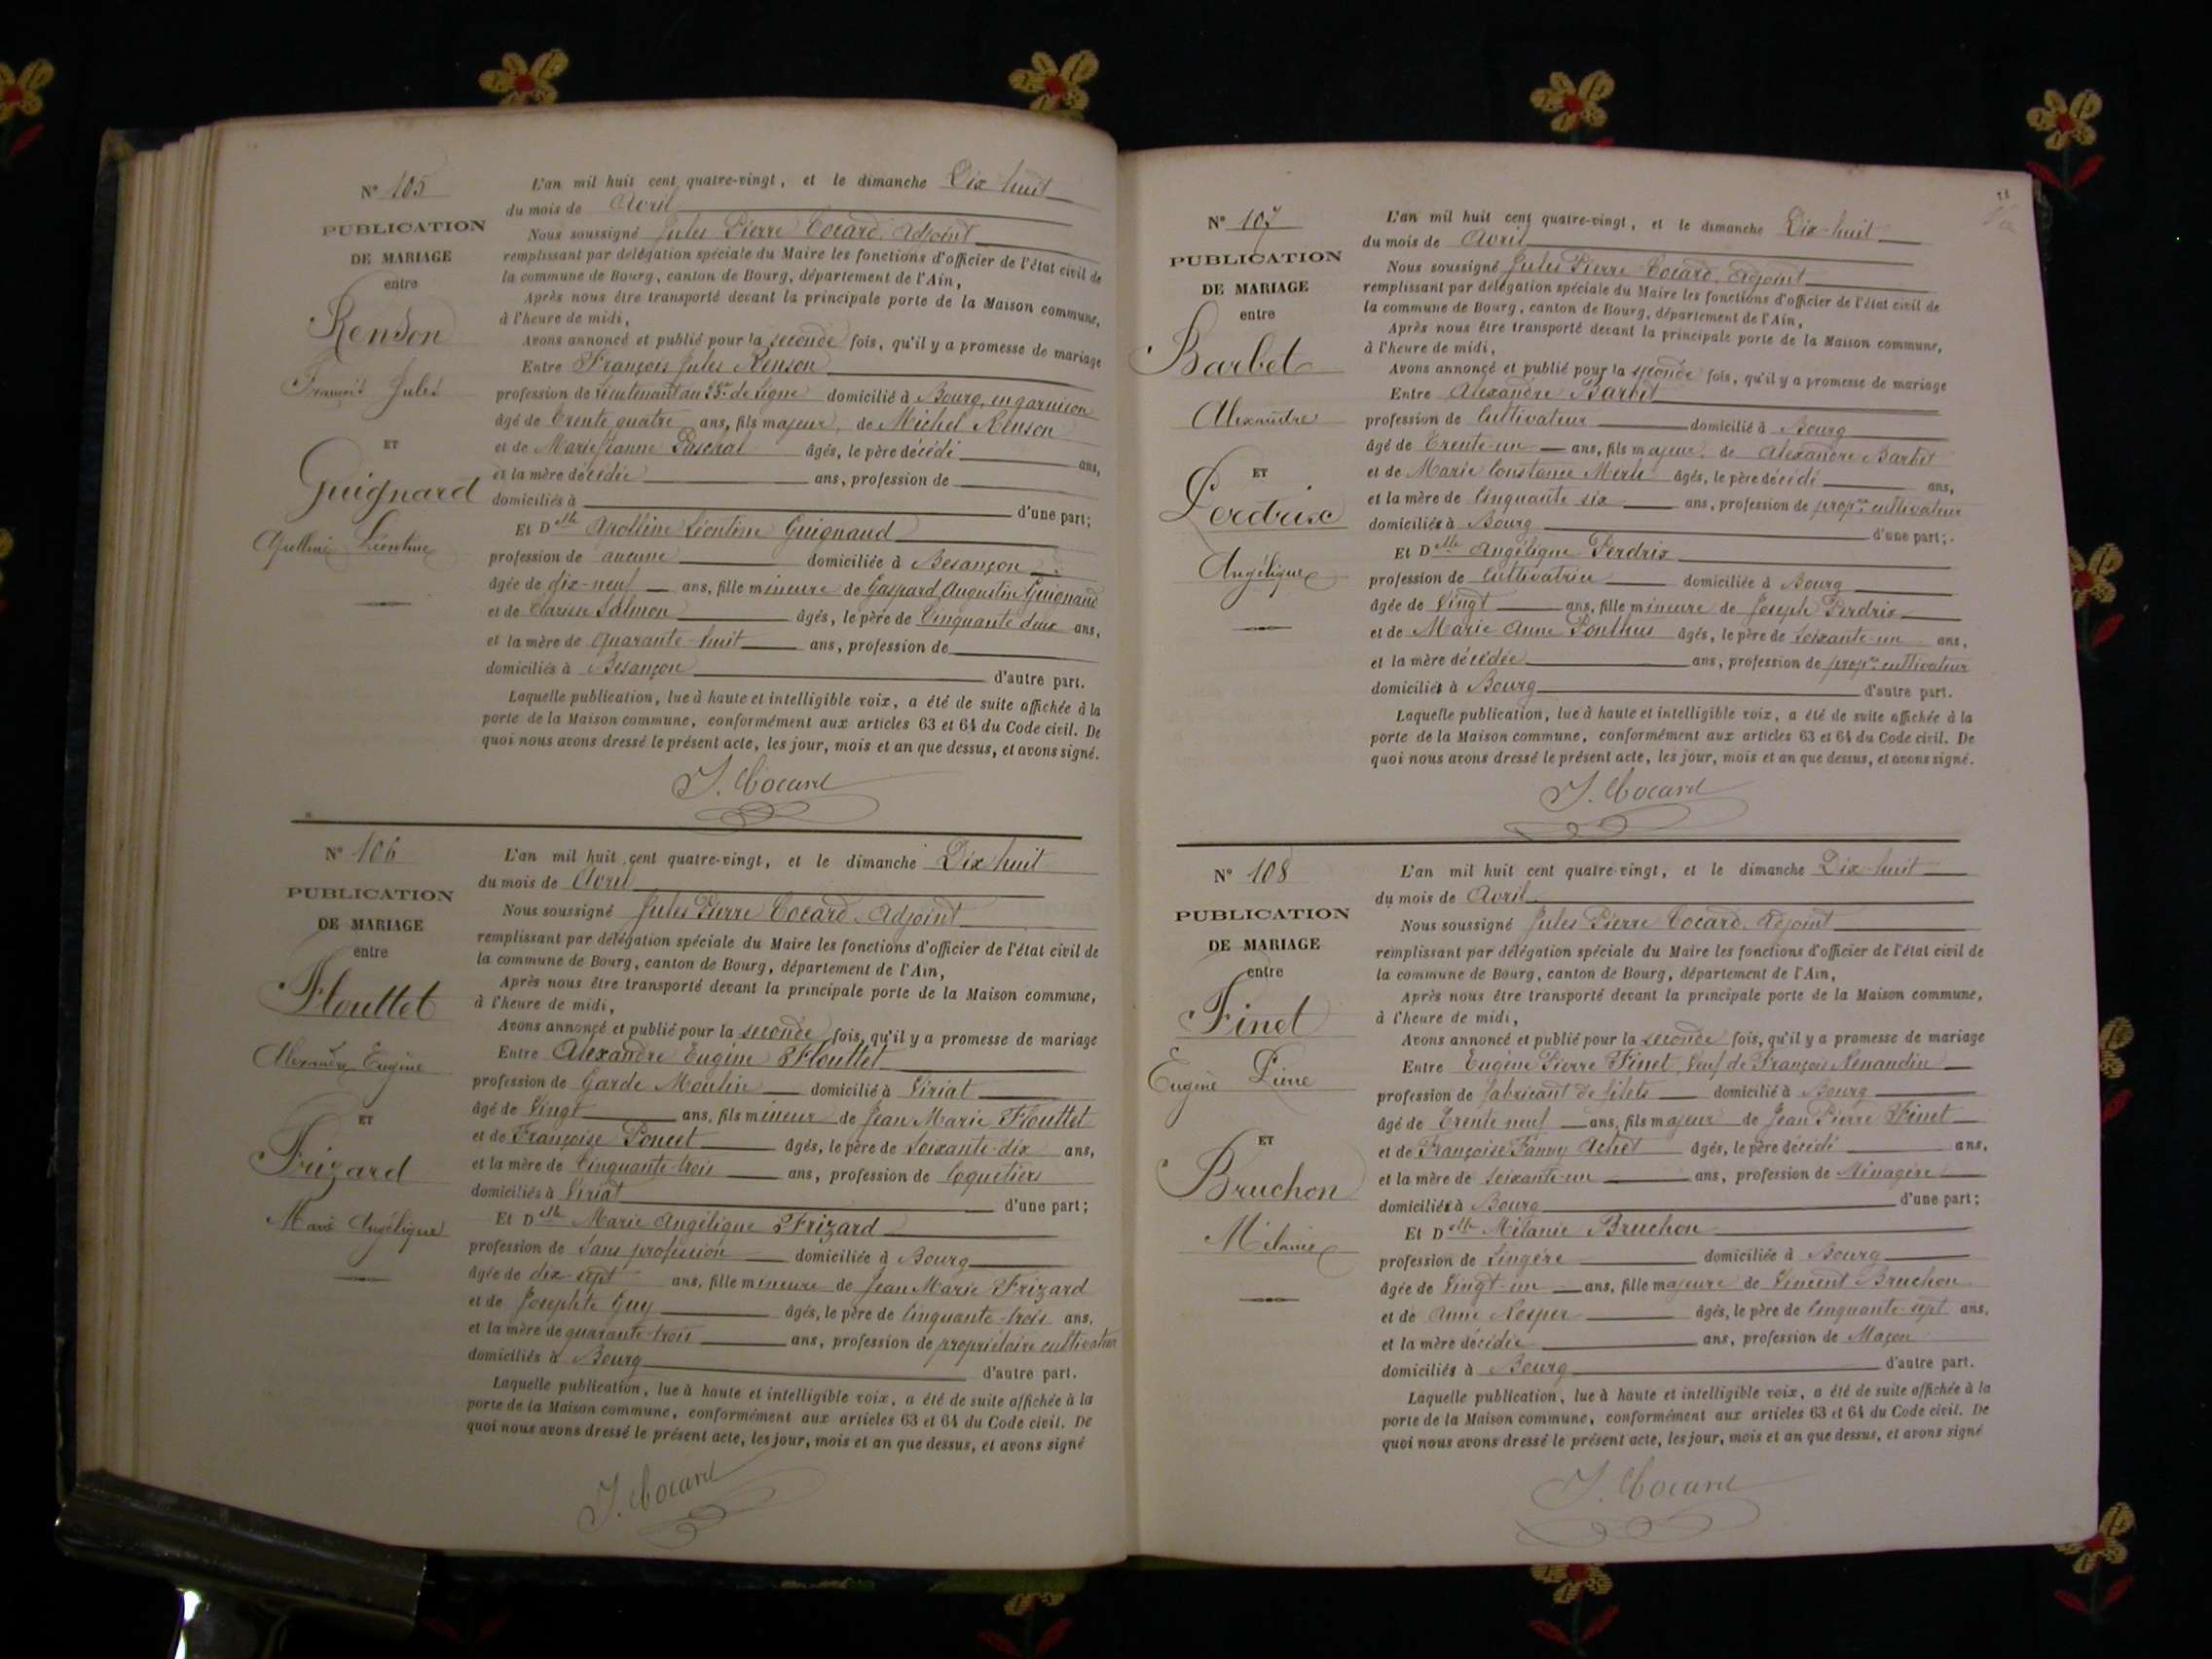 N° 105
PUBLICATION
DE MARIAGE
entre
Renson
François Jules
ET
Guignard
Apolline Léontine
L'an mil huit cent quatre-vingt, et le dimanche Dix huit
du mois de Avril
Nous soussigné Jules Pierre Cocard, Adjoint
remplissant par délégation spéciale du Maire les fonctions d'officier de l'état civil de
la commune de Bourg, canton de Bourg, département de l'Ain,
Après nous être transporté devant la principale porte de la Maison commune,
à l'heure de midi,
Avons annoncé et publié pour la seconde fois, qu'il y a promesse de mariage
Entre François Jules Renson
profession de lieutenant au de ligne domicilié à Bourg, en garnison
âgé de Trente quatre ans, fils majeur de Michel Renson
et de Marie Jeanne Paschal âgés, le père décédé ans,
et la mère décédée ans, profession de
domiciliés à d'une part;
Et Delle Apolline Léontine Guignaud
profession de aucune domiciliée à Besançon
âgée de dix-neuf ans, fille mineure de Gaspard Augustin Guignaud
et de Clarisse Salmon âgés, le père de Cinquante deux ans,
et la mère de Quarante-huit ans, profession de
domiciliés à Besançon d'autre part.
Laquelle publication, lue à haute et intelligible voix, a été de suite affichée à la
porte de la Maison commune, conformément aux articles 63 et 64 du Code civil. De
quoi nous avons dressé le présent acte, les jour, mois et an que dessus, et avons signé.
J. Cocard
N° 106
PUBLICATION
DE MARIAGE
entre
Flouttet
Alexandre Eugène
ET
Frizard
Marie Angélique
L'an mil huit cent quatre-vingt, et le dimanche Dix huit
du mois de Avril
Nous soussigné Jules Pierre Cocard, Adjoint
remplissant par délégation spéciale du Maire les fonctions d'officier de l'état civil de
la commune de Bourg, canton de Bourg, département de l'Ain,
Après nous être transporté devant la principale porte de la Maison commune,
à l'heure de midi,
Avons annoncé et publié pour la seconde fois, qu'il y a promesse de mariage
Entre Alexandre Eugène Flouttet
profession de Garde Moulin domicilié à Viriat
âgé de Vingt ans, fils mineur de Jean Marie Flouttet
et de Françoise Poncet âgés, le père de Soixante-dix ans,
et la mère de Cinquante-trois ans, profession de Coquetiers
domiciliés à Viriat d'une part;
Et Delle Marie Angélique Frizard
profession de Sans profession domiciliée à Bourg
âgée de dix-sept ans, fille mineure de Jean Marie Frizard
et de Josephte Guy âgés, le père de Cinquante-trois ans,
et la mère de quarante-trois ans, profession de propriétaire cultivateur
domiciliés à Bourg d'autre part.
Laquelle publication, lue à haute et intelligible voix, a été de suite affichée à la
porte de la Maison commune, conformément aux articles 63 et 64 du Code civil. De
quoi nous avons dressé le présent acte, les jour, mois et an que dessus, et avons signé
J. Cocard
N° 107
PUBLICATION
DE MARIAGE
entre
Barbet
Alexandre
ET
Perdrix
Angélique
L'an mil huit cent quatre-vingt, et le dimanche Dix-huit
du mois de Avril
Nous soussigné Jules Pierre Cocard, Adjoint
remplissant par délégation spéciale du Maire les fonctions d'officier de l'état civil de
la commune de Bourg, canton de Bourg, département de l'Ain,
Après nous être transporté devant la principale porte de la Maison commune,
à l'heure de midi,
Avons annoncé et publié pour la seconde fois, qu'il y a promesse de mariage
Entre Alexandre Barbet
profession de Cultivateur domicilié à Bourg
âgé de Trente-un ans, fils majeur de Alexandre Barbet
et de Marie Constance Merle âgés, le père décédé ans,
et la mère de Cinquante six ans, profession de propre cultivateur
domiciliés à Bourg d'une part;
Et Delle Angélique Perdrix
profession de Cultivatrice domiciliée à Bourg
âgée de Vingt ans, fille mineure de Joseph Perdrix
et de Marie Anne Ponthus âgés, le père de Soixante-un ans,
et la mère décédée ans, profession de propre cultivateur
domiciliés à Bourg d'autre part.
Laquelle publication, lue à haute et intelligible voix, a été de suite affichée à la
porte de la Maison commune, conformément aux articles 63 et 64 du Code civil. De
quoi nous avons dressé le présent acte, les jour, mois et an que dessus, et avons signé.
J. Cocard
N° 108
PUBLICATION
DE MARIAGE
entre
Finet
Eugène Pierre
ET
Bruchon
Mélanie
L'an mil huit cent quatre-vingt, et le dimanche Dix-huit
du mois de Avril
Nous soussigné Jules Pierre Cocard, Adjoint
remplissant par délégation spéciale du Maire les fonctions d'officier de l'état civil de
la commune de Bourg, canton de Bourg, département de l'Ain,
Après nous être transporté devant la principale porte de la Maison commune,
à l'heure de midi,
Avons annoncé et publié pour la seconde fois, qu'il y a promesse de mariage
Entre Eugène Pierre Finet, Veuf de Renandin
profession de fabricant de filets domicilié à Bourg
âgé de Trente neuf ans, fils majeur de Jean Pierre Finet
et de Françoise Fanny âgés, le père décédé ans,
et la mère de Soixante-un ans, profession de Ménagère
domiciliés à Bourg d'une part;
Et Delle Mélanie Bruchon
profession de Lingère domiciliée à Bourg
âgée de Vingt-un ans, fille majeure de Vincent Bruchon
et de Anne âgés, le père de Cinquante-sept ans,
et la mère décédée ans, profession de Maçon
domiciliés à Bourg d'autre part.
Laquelle publication, lue à haute et intelligible voix, a été de suite affichée à la
porte de la Maison commune, conformément aux articles 63 et 64 du Code civil. De
quoi nous avons dressé le présent acte, les jour, mois et an que dessus, et avons signé
J. Cocard